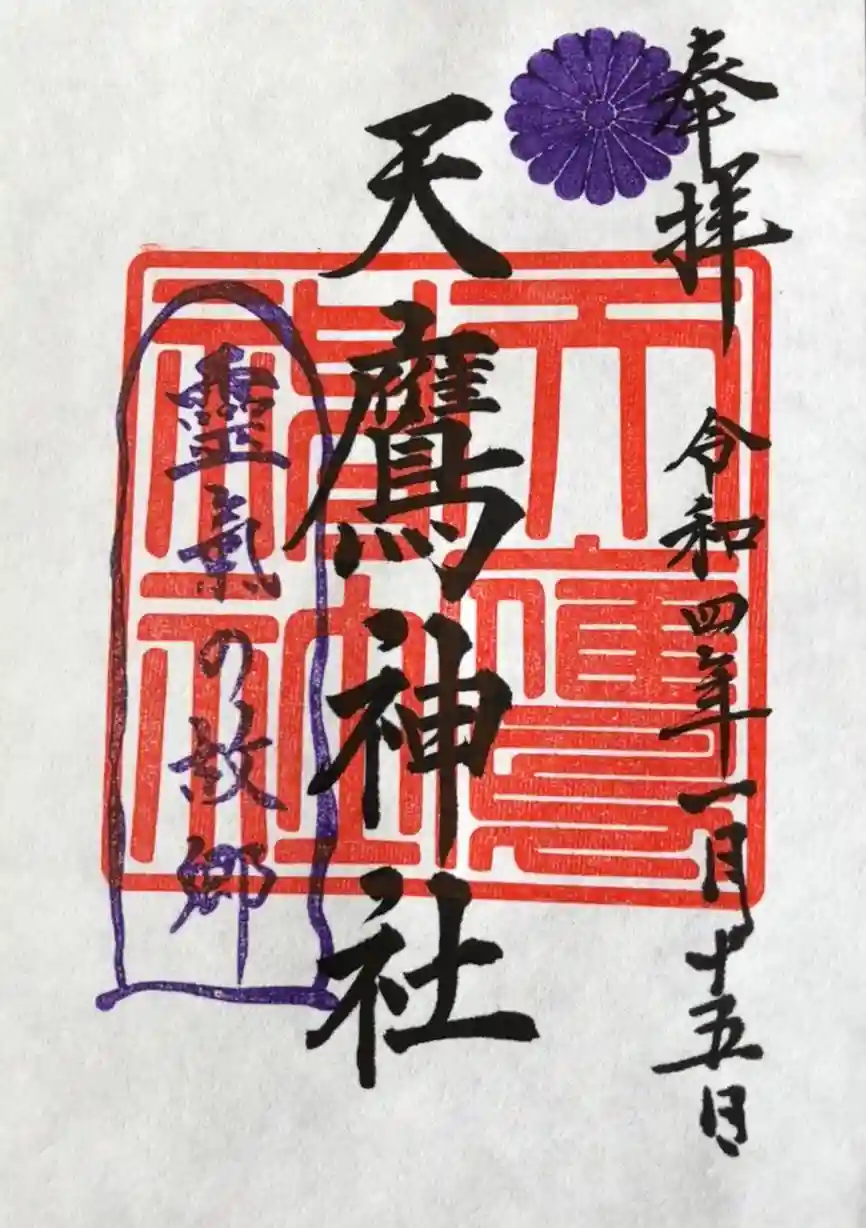 奉拝
令和四年一月十五日
天鷹神社
天鷹神社
靈氣の故郷